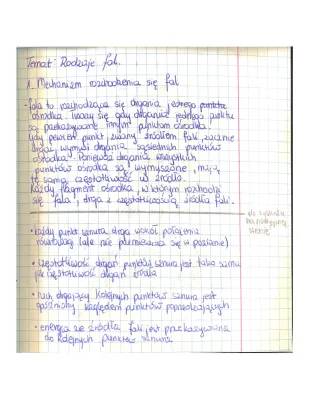 Temat: Rodzaje fal.
1. Mechanizm rozchodzenia się fal
- fala to rozchodzące się drgania jednego punktu
ośrodka. Znaczy się gdy drganie jednego punktu
są przekazywane innym punktom ośrodka.
Gdy pewien punkt zwany źródłem fali zacznie
drgać, wymusi drgania sąsiednich punktów
ośrodka. Ponieważ drgania wszystkich
punktów ośrodka są wymuszone, mają
tę samą częstotliwość co źródło.
Każdy fragment ośrodka, w którym rozchodzi
się fala, drga z częstotliwością źródła fali.
• każdy punkt sznura drga wokół położenia
równowagi (ale nie przemieszcza się w poziomie)
• częstotliwość drgań punktów sznura jest taka sama
jak częstotliwość drgań źródła
• ruch drgający kolejnych punktów sznura jest
opóźniony względem punktów poprzedzających
• energia ze źródła fali jest przekazywana
do kolejnych punktów sznura